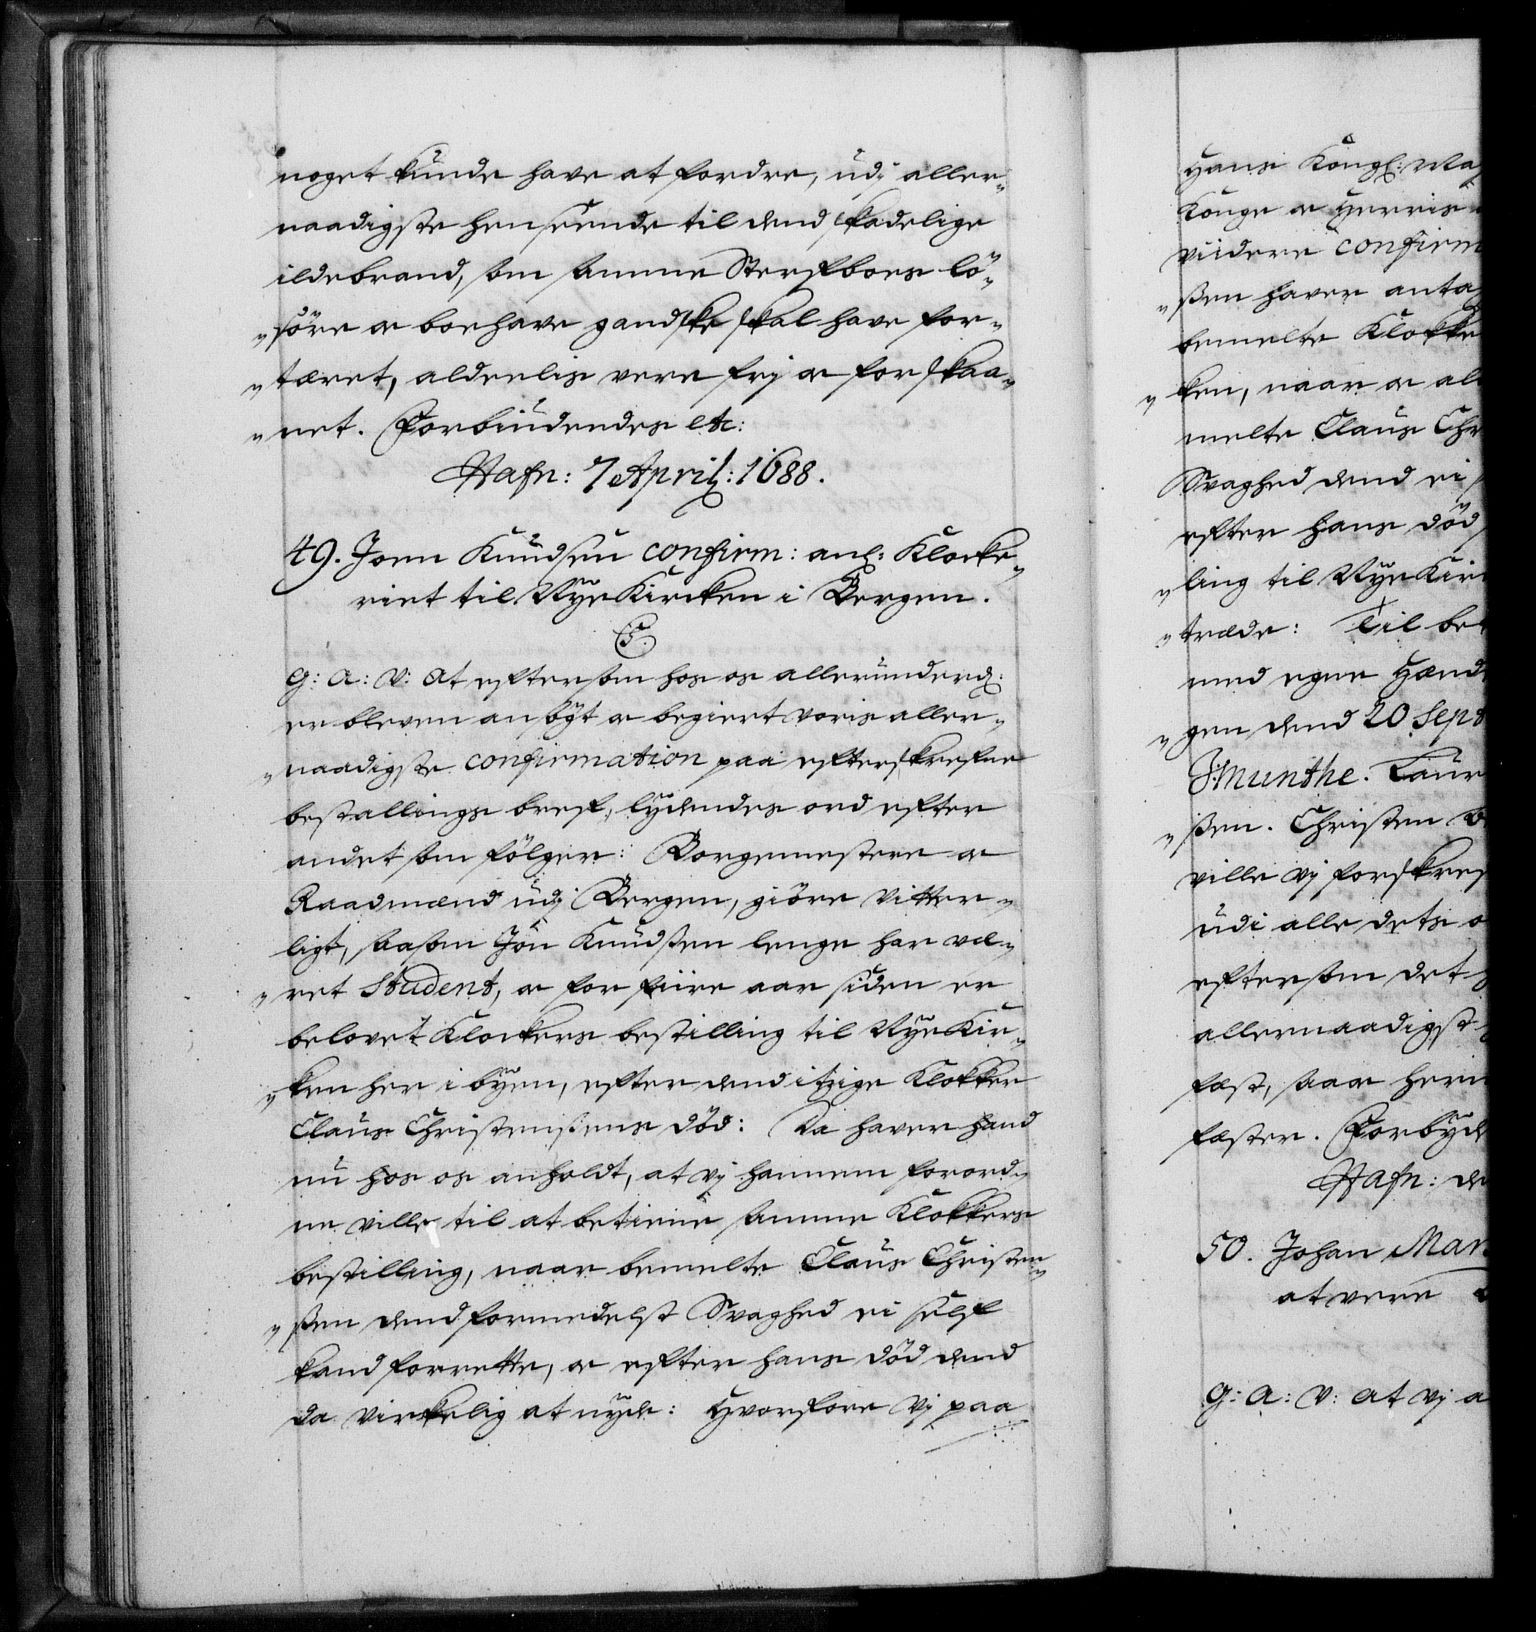 noget kunde have at fordre, udj aller„
naadigste henseende til dend skadelige
ildebrand, som samme Sterfboes lö„
„söre oc boehave gandske skal have for„
„tæret, aldeelis vere frj oc forskaa„
„net. Forbiudendes etc:
Hafn: 7 April: 1688.
49. Joen Knudsen confirm: anl: Klocke„
riet til Nye Kircken i Bergen.
C5.
G: A: V: At eftersom hos os allerunderd:
er bleven ansögt oc begiert voris aller„
„naadigste confirmation paa efterskrefne
bestallings bref, lydendes ord efter
andet som fölger: Borgemestere oc
Raadmænd udj Bergen, giöre vitter„
ligt, saasom Jon Knudsen lenge har væ„
„ret Student, oc for fiire aar siden er
belovet Klockers bestilling til Nye Kir„
„ken her i byen, efter dend itzige Klokker
Claus Christensens död: Da haver hand
nu hos os anholdt, at vj hannem forord„
ne ville til at betiene samme Klokkers
bestilling, naar bemelte Claus Christen„
„sen dend formedelst Svaghed ei self
kand forrette, oc efter hans död dend
da virkelig at nyde: Hvorfore vj paa
Hans Kongl: Maj
Konge oc Herris
viidere confirm
„sen haver antag
bemelte Klokke
„ken, naar oc al
melte Claus Chr
Svaghed dend ei
efter hans död
„ling til Nye Kir
„træde: Til be
med egne Hænd
„gen dend 20 Sept
Munthe. Laur
„sen. Christen
ville vj forskref
udi alle dets
eftersom det
allernaadigst
fæst, saa oc her
fæster. Forbyd
Hafn: de
50. Johan Mar
at vere
G: A: V: At vj a